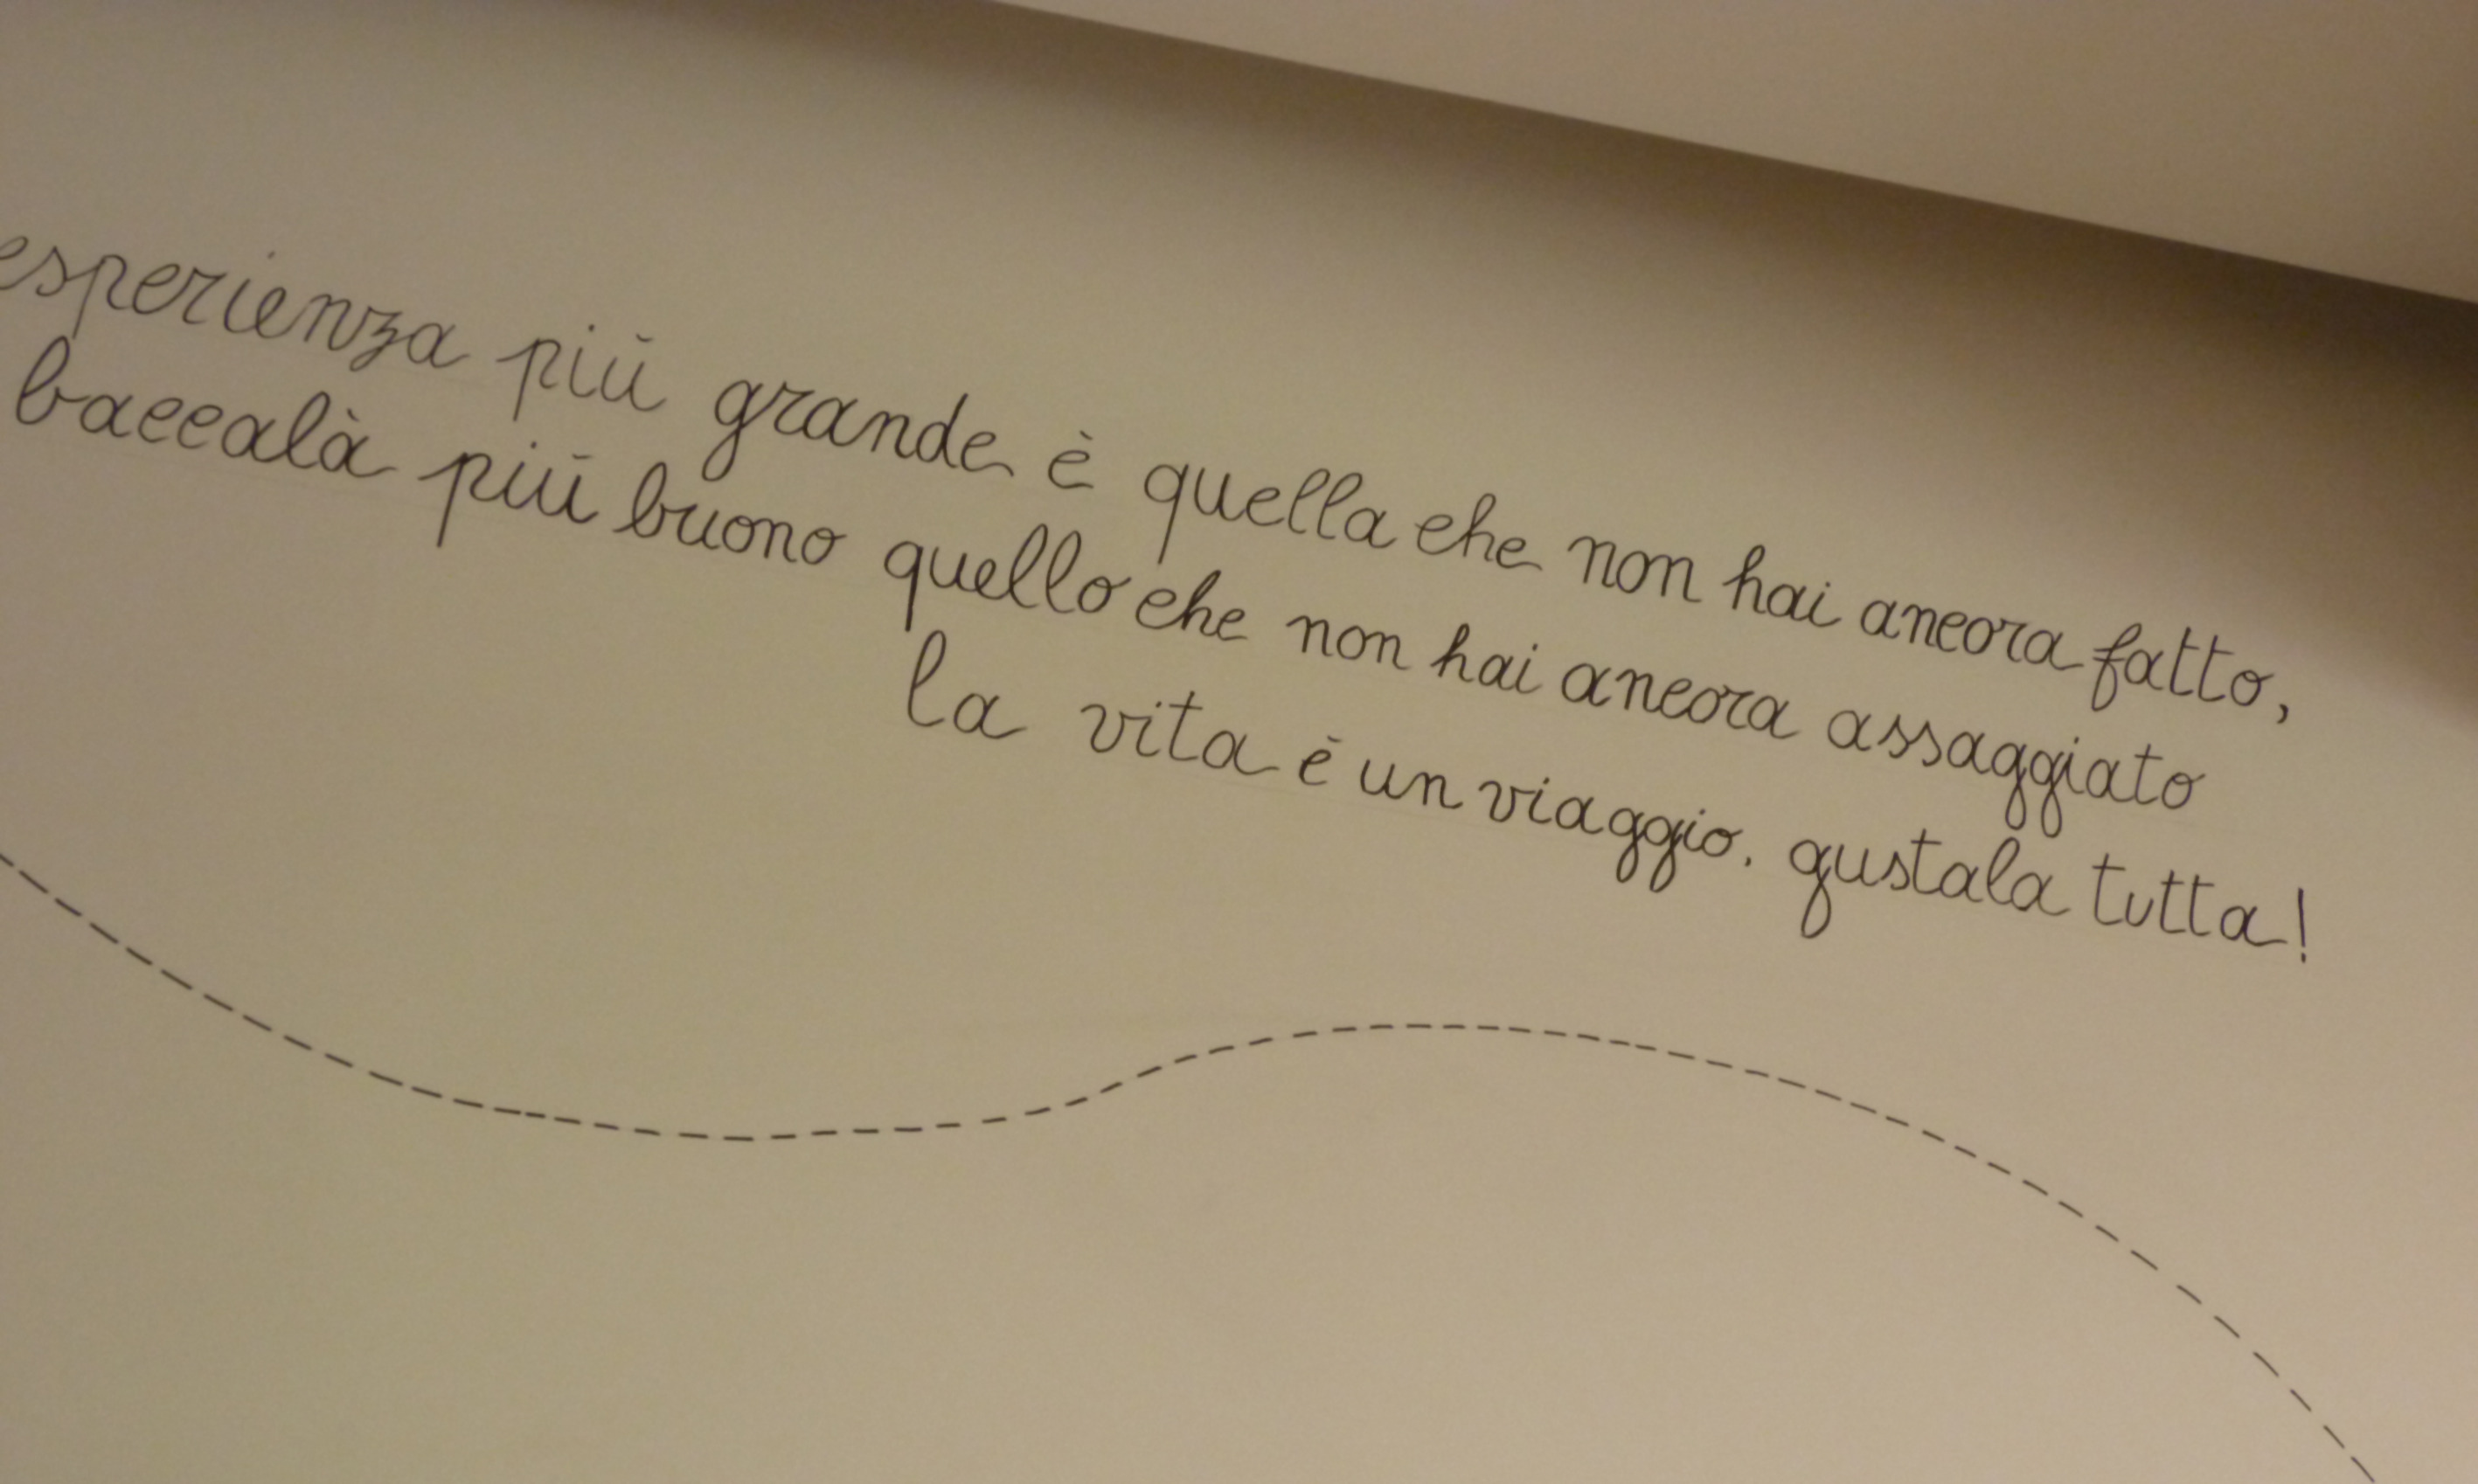 esperienza più grande è quella che non hai ancora fatto,
baccalà più buono quello che non hai ancora assaggiato
la vita è un viaggio, gustala tutta!